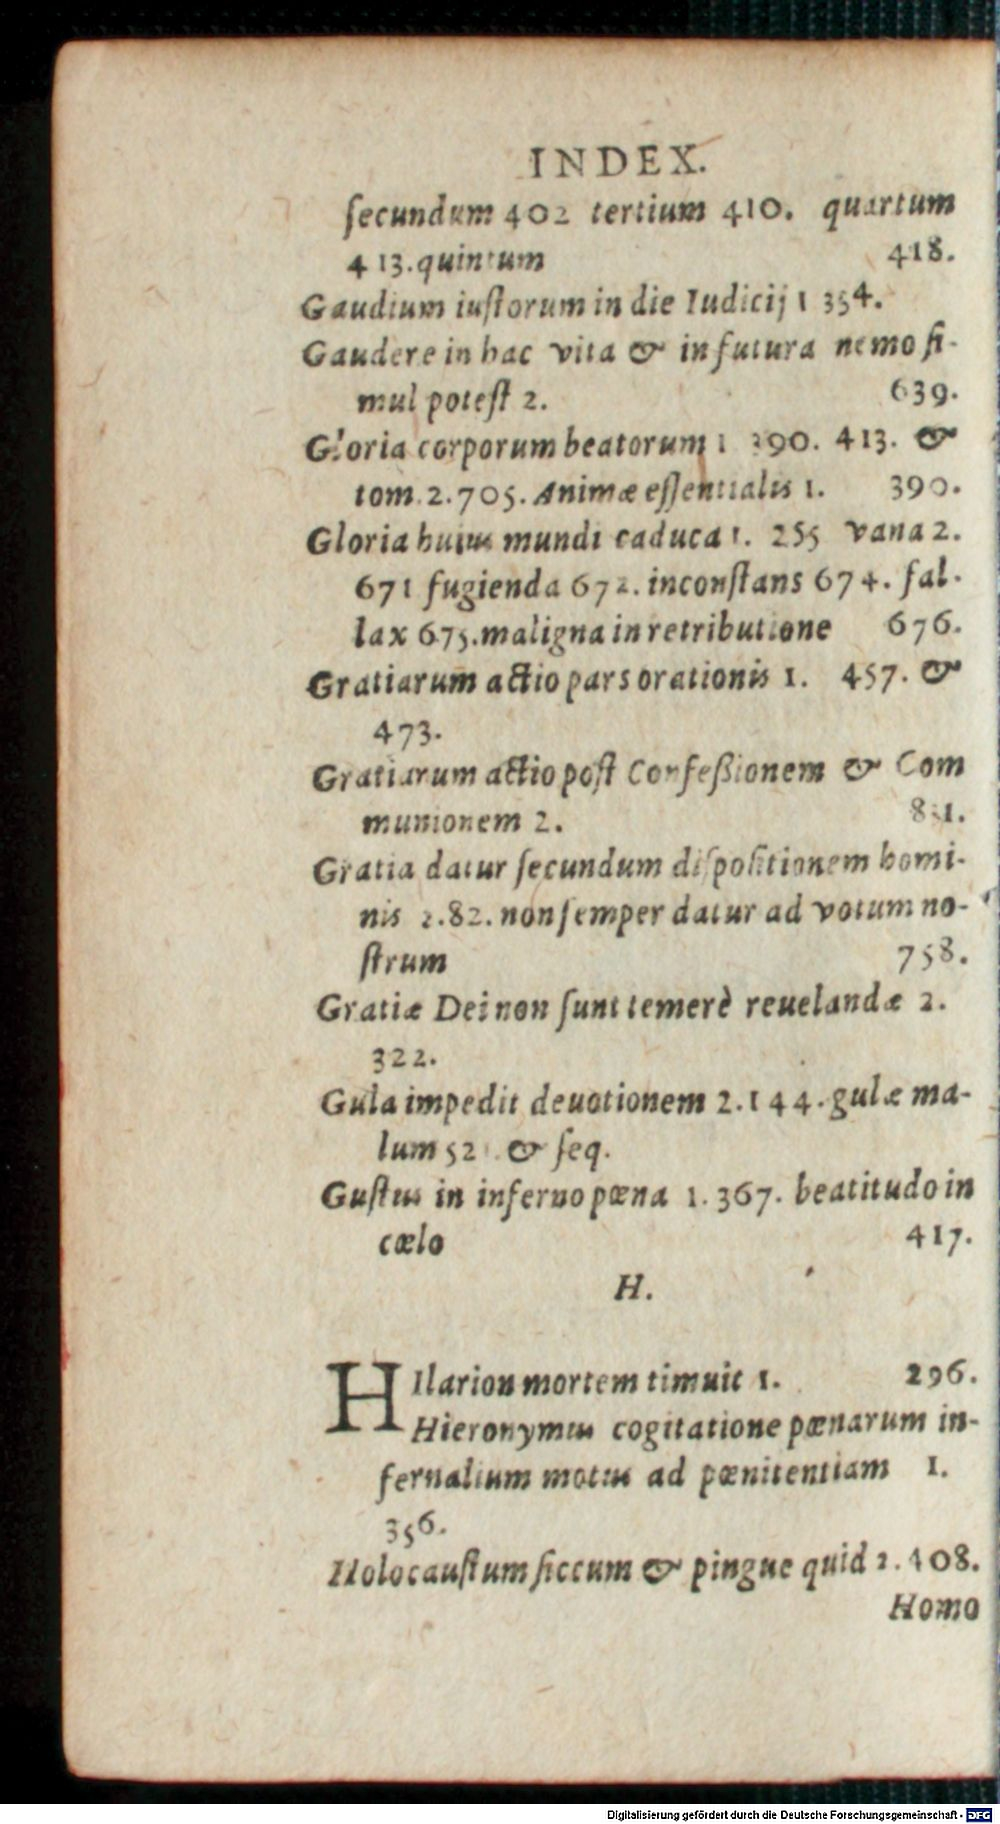 INDEX.
ſecundum 402 tertium 410. quartum
413. quintum 418.
Gaudium iuſtorum in die Iudicij 1 354.
Gaudere in hac vita & in futura nemo ſi-
mul poteſt 2. 639.
Gloria corporum beatorum 1 390. 413. &
tom. 2. 705. Animæ eſſentialis 1. 390.
Gloria huius mundi caduca 1. 255 vana 2.
671 fugienda 672. inconſtans 674. fal-
lax 675. maligna in retributione 676.
Gratiarum actio pars orationis 1. 457. &
473.
Gratiarum actio poſt Confeßionem & Com
munionem 2.
Gratia datur ſecundum diſpoſitionem homi-
nis 2. 82. non ſemper datur ad votum no-
ſtrum 758.
Gratiæ Dei non ſunt temerè reuelandæ 2.
322.
Gula impedit deuotionem 2. 144. gulæ ma-
lum & ſeq.
Guſtus in inferno pœna 1. 367. beatitudo in
cælo 417.
H.
HIlarion mortem timuit 1. 296.
Hieronymus cogitatione pœnarum in-
fernalium motus ad pœnitentiam 1.
356.
Holocauſtum ſiccum & pingue quid 2. 408.
Homo
Digitalisierung gefördert durch die Deutsche Forschungsgemeinschaft - DFG